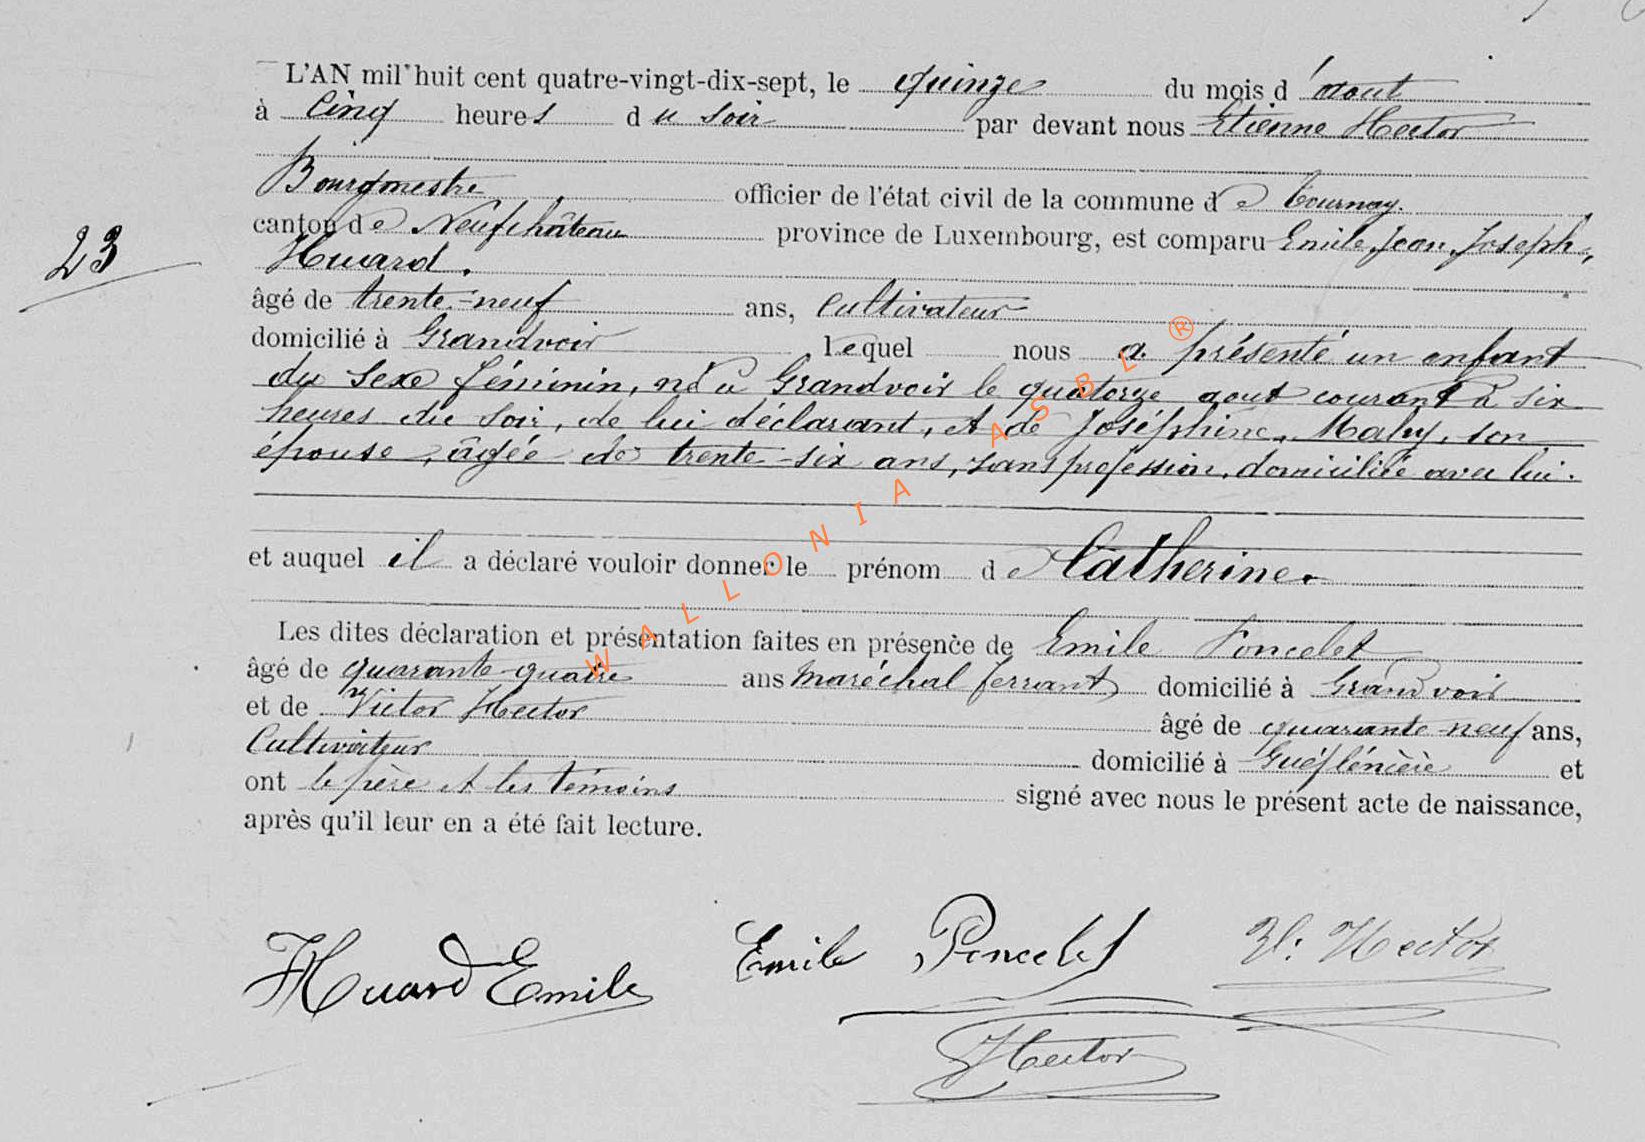 L'AN mil huit cent quatre-vingt-dix-sept, le quinze du mois d'aout
à cinq heures du soir par devant nous Etienne Hector
Bourgmestre officier de l'état civil de la commune de Tournay.
canton de Neufchâteau province de Luxembourg, est comparu Emile, Jean, Joseph,
Huard.
23
âgé de trente-neuf ans, cultivateur
domicilié à Grandvoir lequel nous a présenté un enfant
du sexe féminin, né à Grandvoir le quatorze aout courant à six
heures du soir, de lui déclarant, et de Joséphine, Mahy, son
épouse, âgée de trente-six ans, sans profession, domiciliée avec lui.
et auquel il a déclaré vouloir donner le prénom de Catherine.
Les dites déclaration et présentation faites en présence de Emile Poncelet
âgé de quarante-quatre ans maréchal ferrant domicilié à Grandvoir
et de Victor Hector âgé de quarante neuf ans,
Cultivateur domicilié à et
ont le père et les témoins signé avec nous le présent acte de naissance,
après qu'il leur en a été fait lecture.
Huard Emile Emile Poncelet V. Hector
Hector
WALLONIA ASBL ®